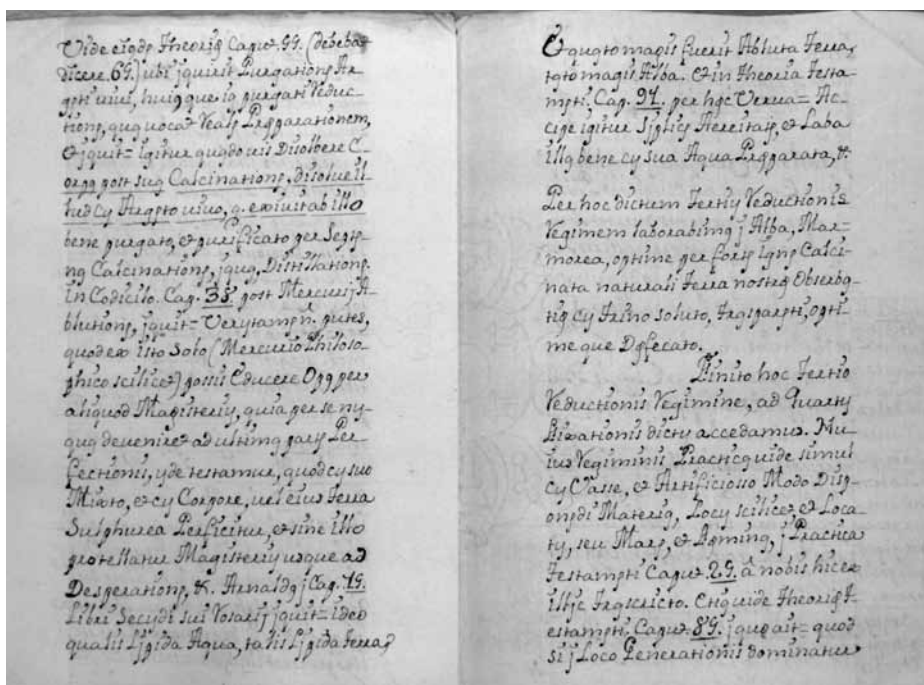 Vide eiqdę Theorię Caput. 99. (debebat
dicere 69.) ubi jquirit Purgationę Ar-
gęti uiui, huiqque ią purgati Reduc-
tionę, quą uocat Realę Pręparationem,
Et jquit= Igitur quądo uis Disolvere C-
orpą post suą Calcinationę, disolue il-
lud cy Argęto uiuo, q. exiuit ab illo
bene purgato, et purificato per Sepię-
ną Calcinationę, jquą, Distillationę.
In Codicilo. Cap. 38. post Mercurij A-
blutionę, jquit= Verytamę ń. putes,
quod ex isto Solo (Mercurio Philoso-
phico scilicet) possis Educere Opą per
aliquod Magisteriy, quia per se ny-
quą deueniret ad ultimą partę Per-
fectionis, yde testamur, quod cy suo
Mixto, et cy Corpore, uel eius Terra
Sulphurea Perficitur, et sine illo
protellatur Magisteriy usque ad
Desperationę, &. Arnaldą j Cap. 19.
Libri Secudi sui Rosarij jquit= ideo
qualis Ljpida Aqua, talis Ljpida terra,
Et quąto magis fuerit Abluta Terra,
tąto magis Alba. Et in Theoria Testa-
męti. Cap. 97. per hęc Verua= Ac-
cipe igitur Sjplicę Aereitatę, et Laba
illą bene cy sua Aqua Pręparata, &.
Per hoc dictum Tertiy Reductionis
Regimem laborabimą j Alba, Mar-
morea, optime per fortę ignę Calci-
nata naturali Terra nostrę Obserba-
tię, cy Trino soluto, Trąsparęti, opti-
me que Dęfecato.
Finito hoc Tertio
Reductionis Regimine, ad Quarty
Fixationis dicty accedamus. Hu-
ius Regiminis Practicą uide simul
cy Vasse, et Artificiosso Modo Disp-
onędi Materią, Locy scilicet, et Loca-
ty, seu Marę, et Fęminą, j Practica
Testamęti Caput. 29. â nobis hic ex
illjc Trąscricto. Etią uide Theorię T-
estamęti. Caput. 89. j quo ait= quod
si j Loco Generationis dominatur